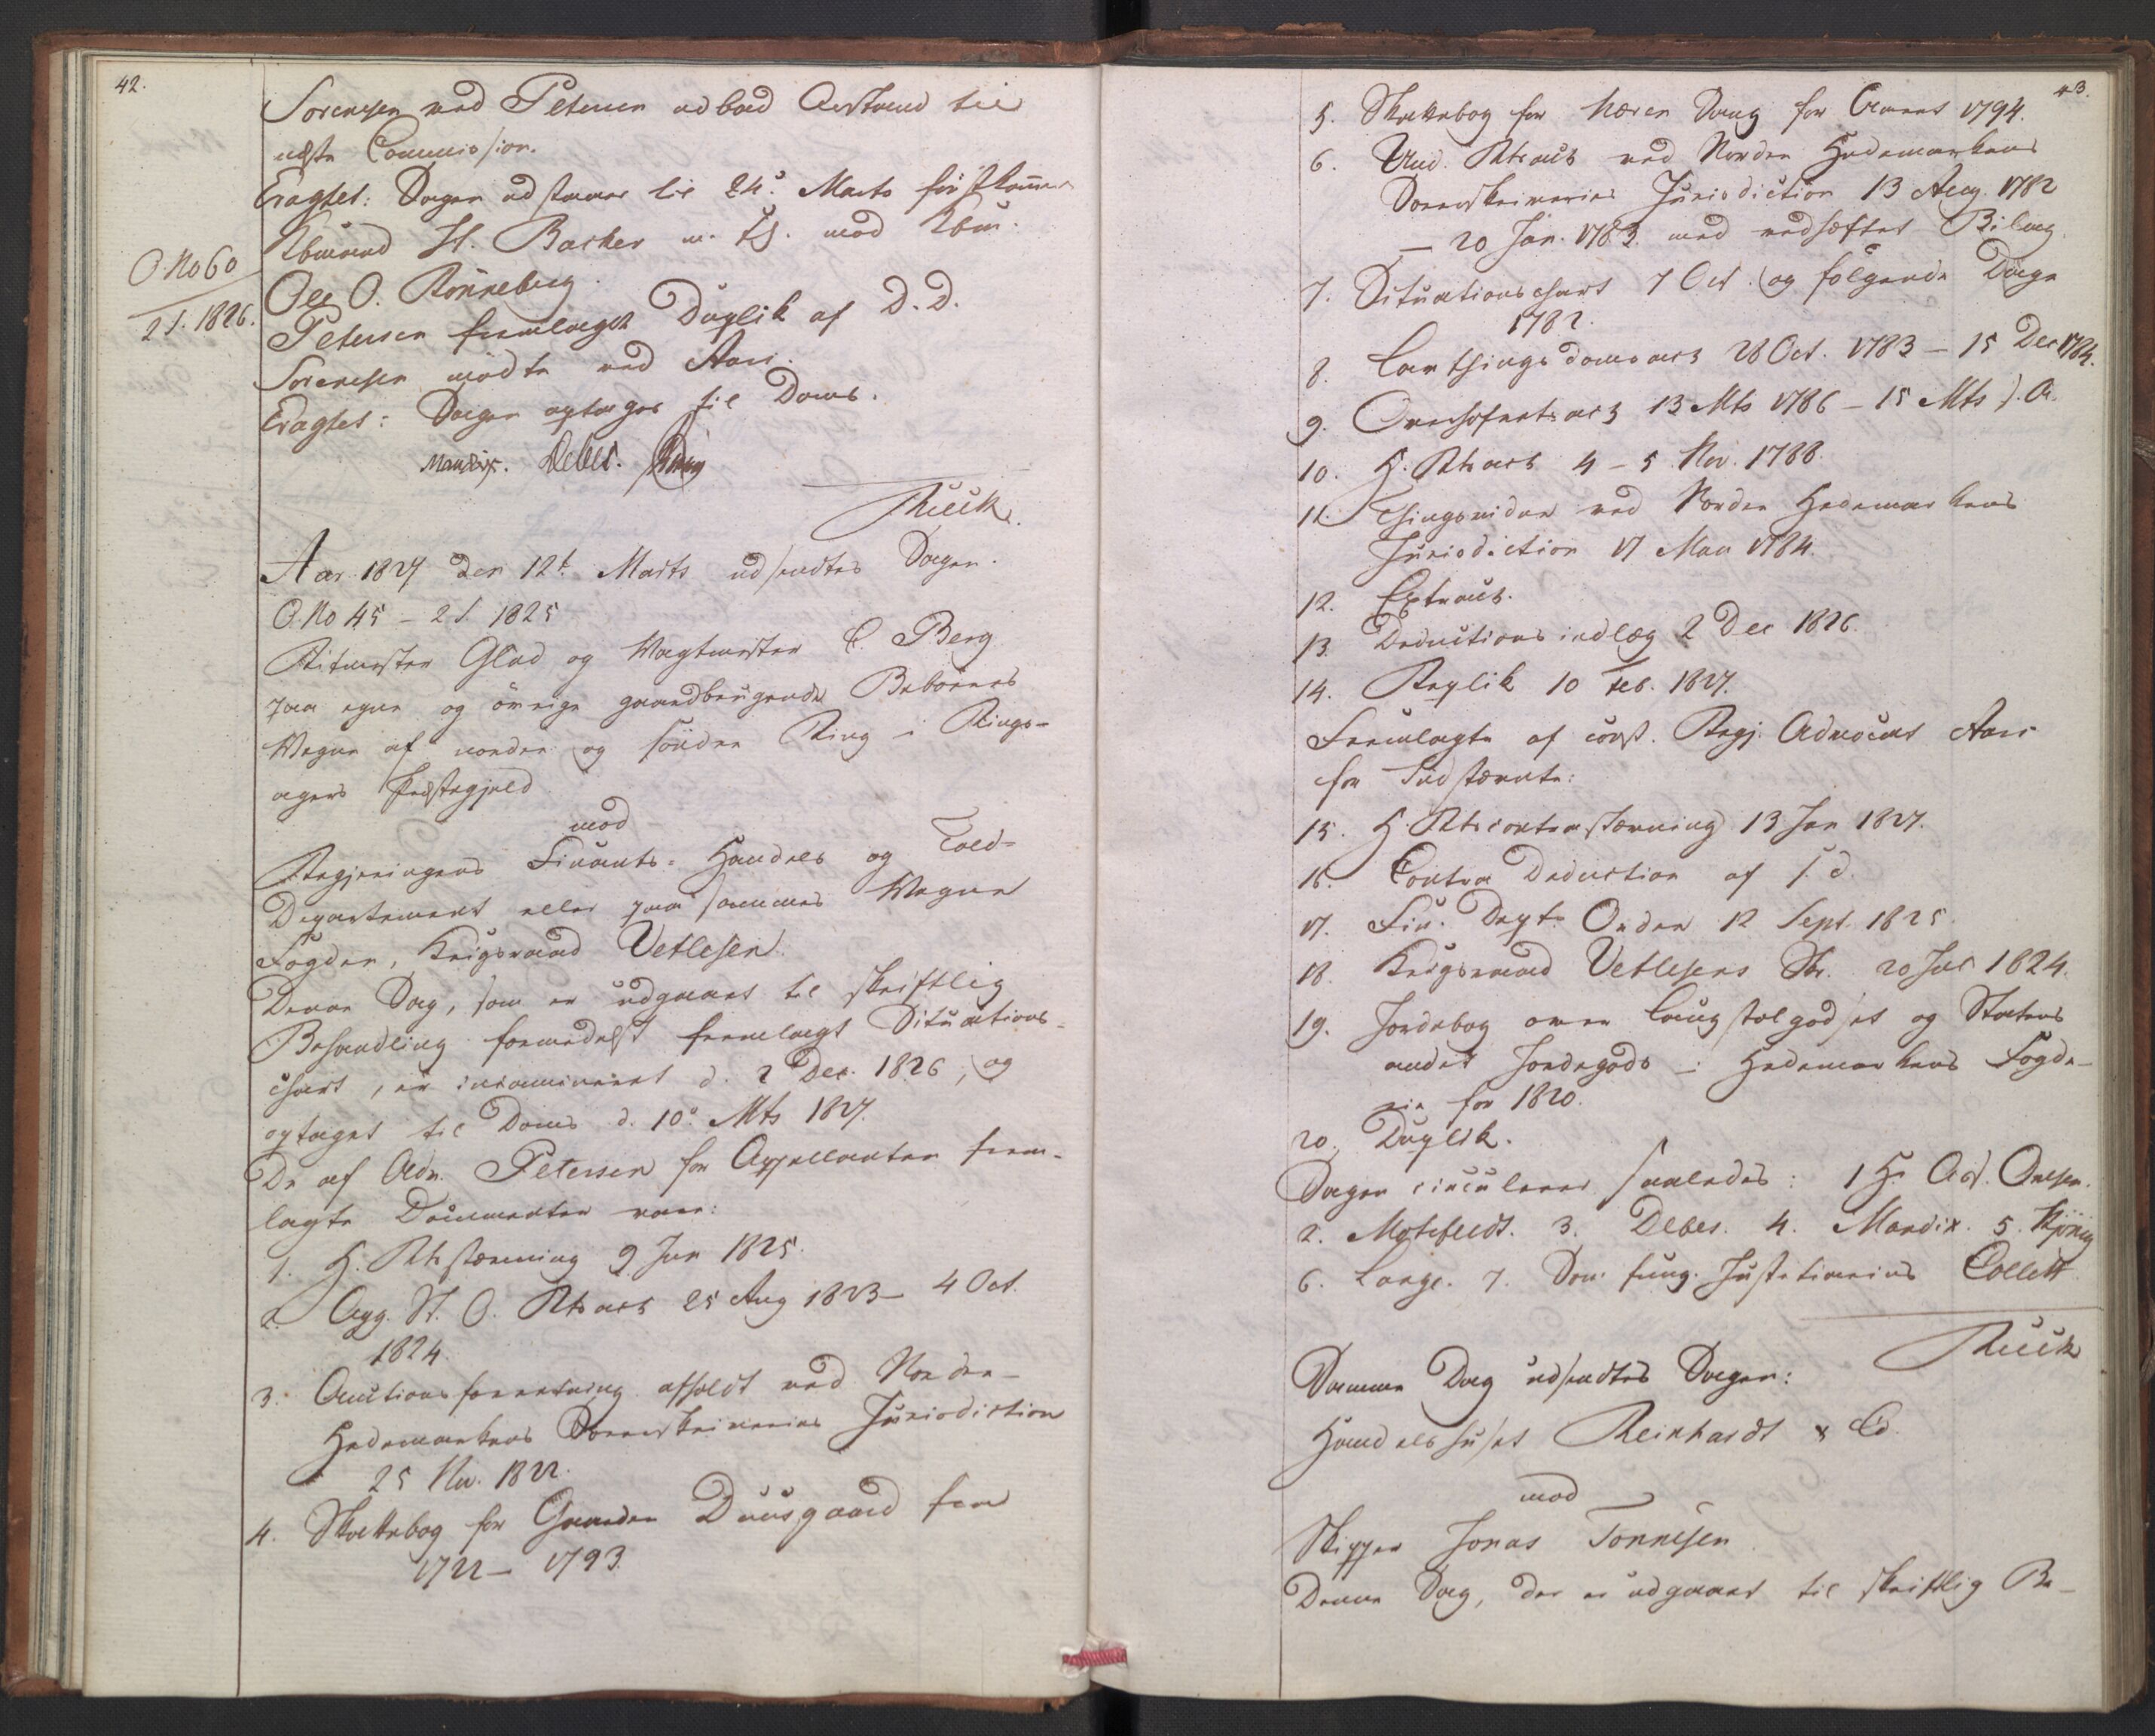 42.
Sorensen ved Petersen udbad Anstand til
næste Commission.
Eragtet: Sagen udstaaer til 24de Marts førstkom̄
O. No 60
2 S. 1826.
Kbmand H. Backer m. fl. mod Kbm.
Ole O. Rönneberg.
Petersen fremlagde Duplik af D. D.
Sorensen mödte ved Aars.
Eragtet: Sagen optages til Doms.
Mandix. Debes.
Ruck
Aar 1827 den 12te Marts udsendtes Sagen.
O. No 45 – 2 S. 1825
Ritmester Glad og Vagtmester C. Berg
paa egne og övrige gaardbrugende Beboeres
Vegne af nordre og söndre Ring i Rings-
agers Præstegjeld
mod
Regjeringens Finants- Handels og Told-
Departement eller paa sammes Vegne
Fogden, Krigsraad Vetlesen.
Denne Sag, som er udgaaet til skriftlig
Behandling formedelst fremlagt Situations-
chart, er incamineret d. 2 Dec. 1826, og
optaget til Doms d. 10de Mts 1827.
De af Adv. Petersen for Appellanten frem-
lagte Documenter vare:
1. H. Rts stævning 9 Jun 1825.
2. Agg. St. O. Rts act 25 Aug 1823 – 4 Oct.
1824.
3. Auctionsforretning afholdt ved Nordre-
Hedemarkens Sorenskriveries Jurisdiction
25 Nov. 1822.
4. Skattebog for Gaarden Duusgaard fra
1722 – 1793.
43.
5. Skattebog for for Aaret 1794.
6. Und. Rts act ved Nordre Hedemarkens
Sorenskriveries Jurisdiction 13 Aug. 1782
– 20 Jan. 1783. med vedhæftet Bilag
7. Situationschart 7 Oct. og følgende Dage
1782.
8. Lauthingsdomsact 28 Oct. 1783 – 15 Dec 1784.
9. Overhofretsact 13 Mts 1786 – 15 Mts s. A.
10. H. Rts act 4 – 5 Nov. 1788.
11. Thingsvidne ved Nordre Hedemarkens
Jurisdiction 17 Mai 1784.
12. Extract.
13. Deductionsindlæg 2 Dec 1826.
14. Replik 10 Feb. 1827.
Fremlagte af const. Regj. Advocat Aars
for Indstævnte:
15. H. Rts contrastævning 13 Jan 1827.
16. Contra Deduction af s. d.
17. Fin. Dept. Ordre 12 Sept. 1825.
18. Krigsraad Vetlesens Skr. 20 Jul 1824.
19. Jordebog over Laugstolgodset og Statens
andet Jordegods i Hedemarkens Fogde-
rie for 1820.
20. Duplik.
Sagen circulerer saaledes: 1 Hr Ass. Omsen.
2. Motzfeldt. 3. Debes. 4. Mandix. 5.
6. Lange. 7. Den fung. Justitiarius Collett
Ruck
Samme Dag udsendtes Sagen:
Handelshuset Reinhardt & Co
mod
Skipper Jonas Tönnesen.
Denne Sag, der er udgaaet til skriftlig Be-